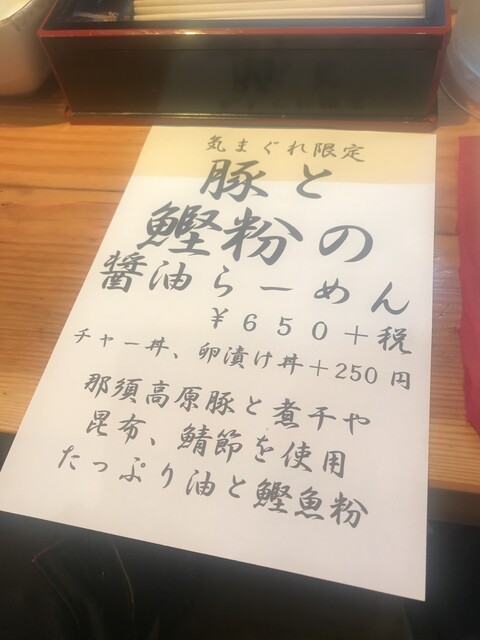 気まぐれ限定
豚と
鰹粉の
醤油らーめん
￥６５０＋税
チャー丼、卵漬け丼＋250円
那須高原豚と煮干や
昆布、鯖節を使用
たっぷり油と鰹魚粉